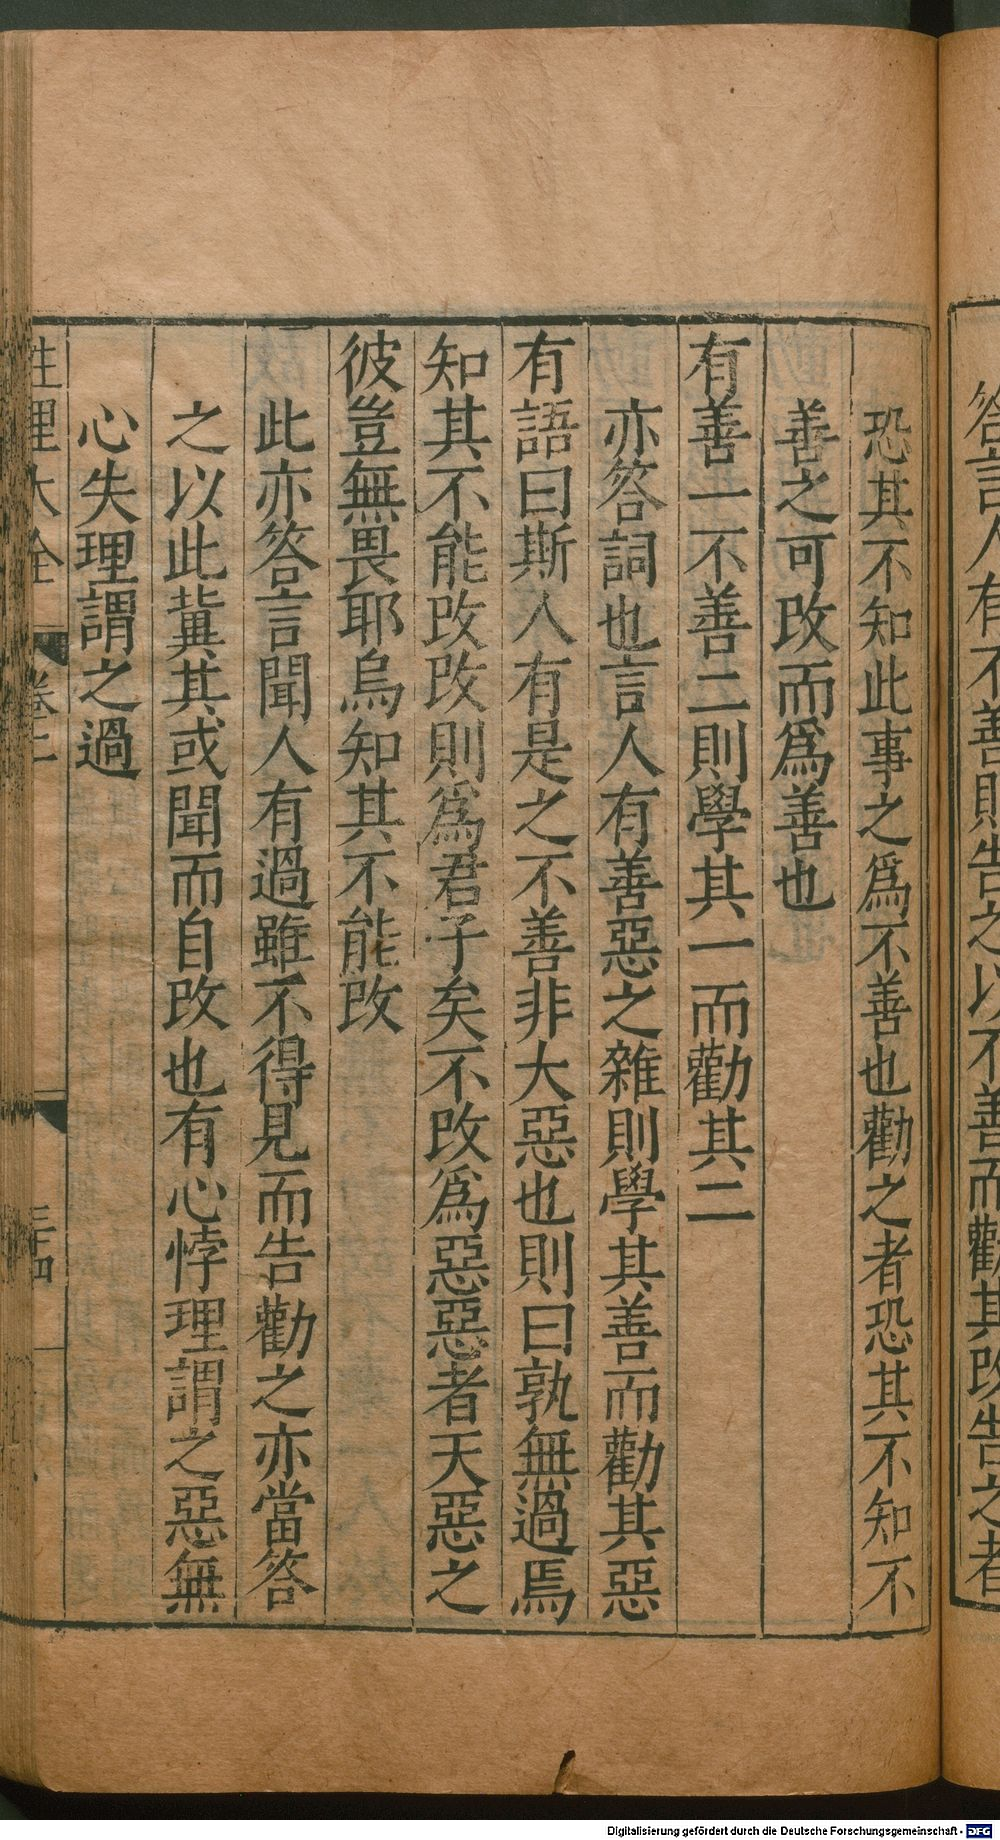 答言人有不善則告之以不善而勸其改告之者
恐其不知此事之爲不善也勸之者恐其不知不
善之可改而爲善也
有善一不善二則學其一而勸其二
亦答詞也言人有善惡之雜則學其善而勸其惡
有語曰斯人有是之不善非大惡也則曰孰無過焉
知其不能改改則爲君子矣不改爲惡惡者天惡之
彼豈無畏耶烏知其不能改
此亦答言聞人有過雖不得見而告勸之亦當答
之以此冀其或聞而自改也有心悖理謂之惡無
心失理謂之過
性理大全 卷二 三十四
Digitalisierung gefördert durch die Deutsche Forschungsgemeinschaft - DFG